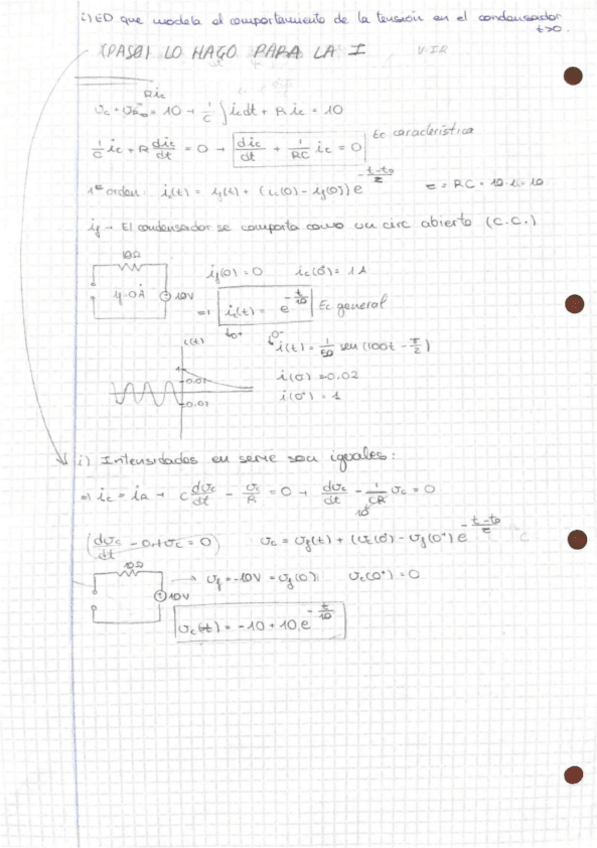 i) ED que modela el comportamiento de la tensión en el condensador
t>0.
(PASO) LO HAGO PARA LA I V=IR
Ric
vc + vR = 10 → 1/C ∫ ic dt + R ic = 10
1/C ic + R dic/dt = 0 → dic/dt + 1/RC ic = 0 Ec característica
1er orden: ic(t) = if(t) + (ic(0) - if(0)) e^(-(t-t0)/τ) τ = RC = 10·1 = 10
if → El condensador se comporta como un circ abierto (C.C.)
10Ω
if=0A 10V
if(0) = 0 ic(0+) = 1A
=> ic(t) = e^(-t/10) Ec general
t>0+ 0-
i(t) i(t) = 1/50 sen(100t - π/2)
1
0.02 i(0-) = 0.02
-0.02 i(0+) = 1
i) Intensidades en serie son iguales:
=> ic = iR → C dvc/dt - vc/R = 0 → dvc/dt - 1/CR vc = 0
(dvc/dt - 0,1 vc = 0) vc = vf(t) + (vc(0+) - vf(0+)) e^(-(t-t0)/τ)
10Ω
10V → vf = -10V = vf(0) vc(0+) = 0
vc(t) = -10 + 10·e^(-t/10)